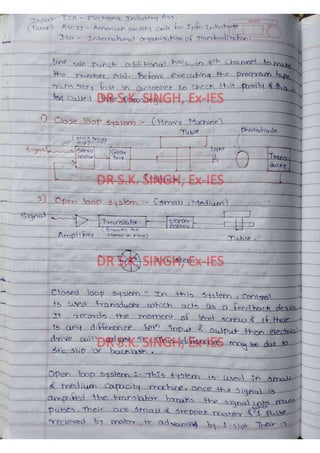 Insert EIA - Electronic Industry Ass.
(Tape) ASCII - American society code for Info Interchange
Iso - International organisation of standardization
line we punch additional hole in 5th channel to make
the number odd. Before executing the program tape
runs very fast in controller to check this parity & this is
DR S.K. SINGH, Ex-IES
1) Close loop system :- (Heavy Machine)
Table
photodiode
Signal
Servo motor
Gear box
Light
Trans-
ducer
DR S.K. SINGH, Ex-IES
2) Open loop system :- (small, Medium)
Signal
Translator
stepper motor
Amplifier
(Breaks the signal in pulse)
Table.
DR S.K. SINGH, Ex-IES
Closed loop system :- In this system, control
is used transducer which acts as a feedback device
It records the moment of lead screw & if there
is any difference btn input & output then electrical
drive will adjust. This difference may be due to
DR S.K. SINGH, Ex-IES
stic slip or backlash.
Open loop system :- This system is used in small
& medium capacity machine. Once the signal is
amplified the translator breaks the signal into many
pulses. Their are small & stepper motor & 1 pulse
recieved by motor it advanced by 1-slot. Their is